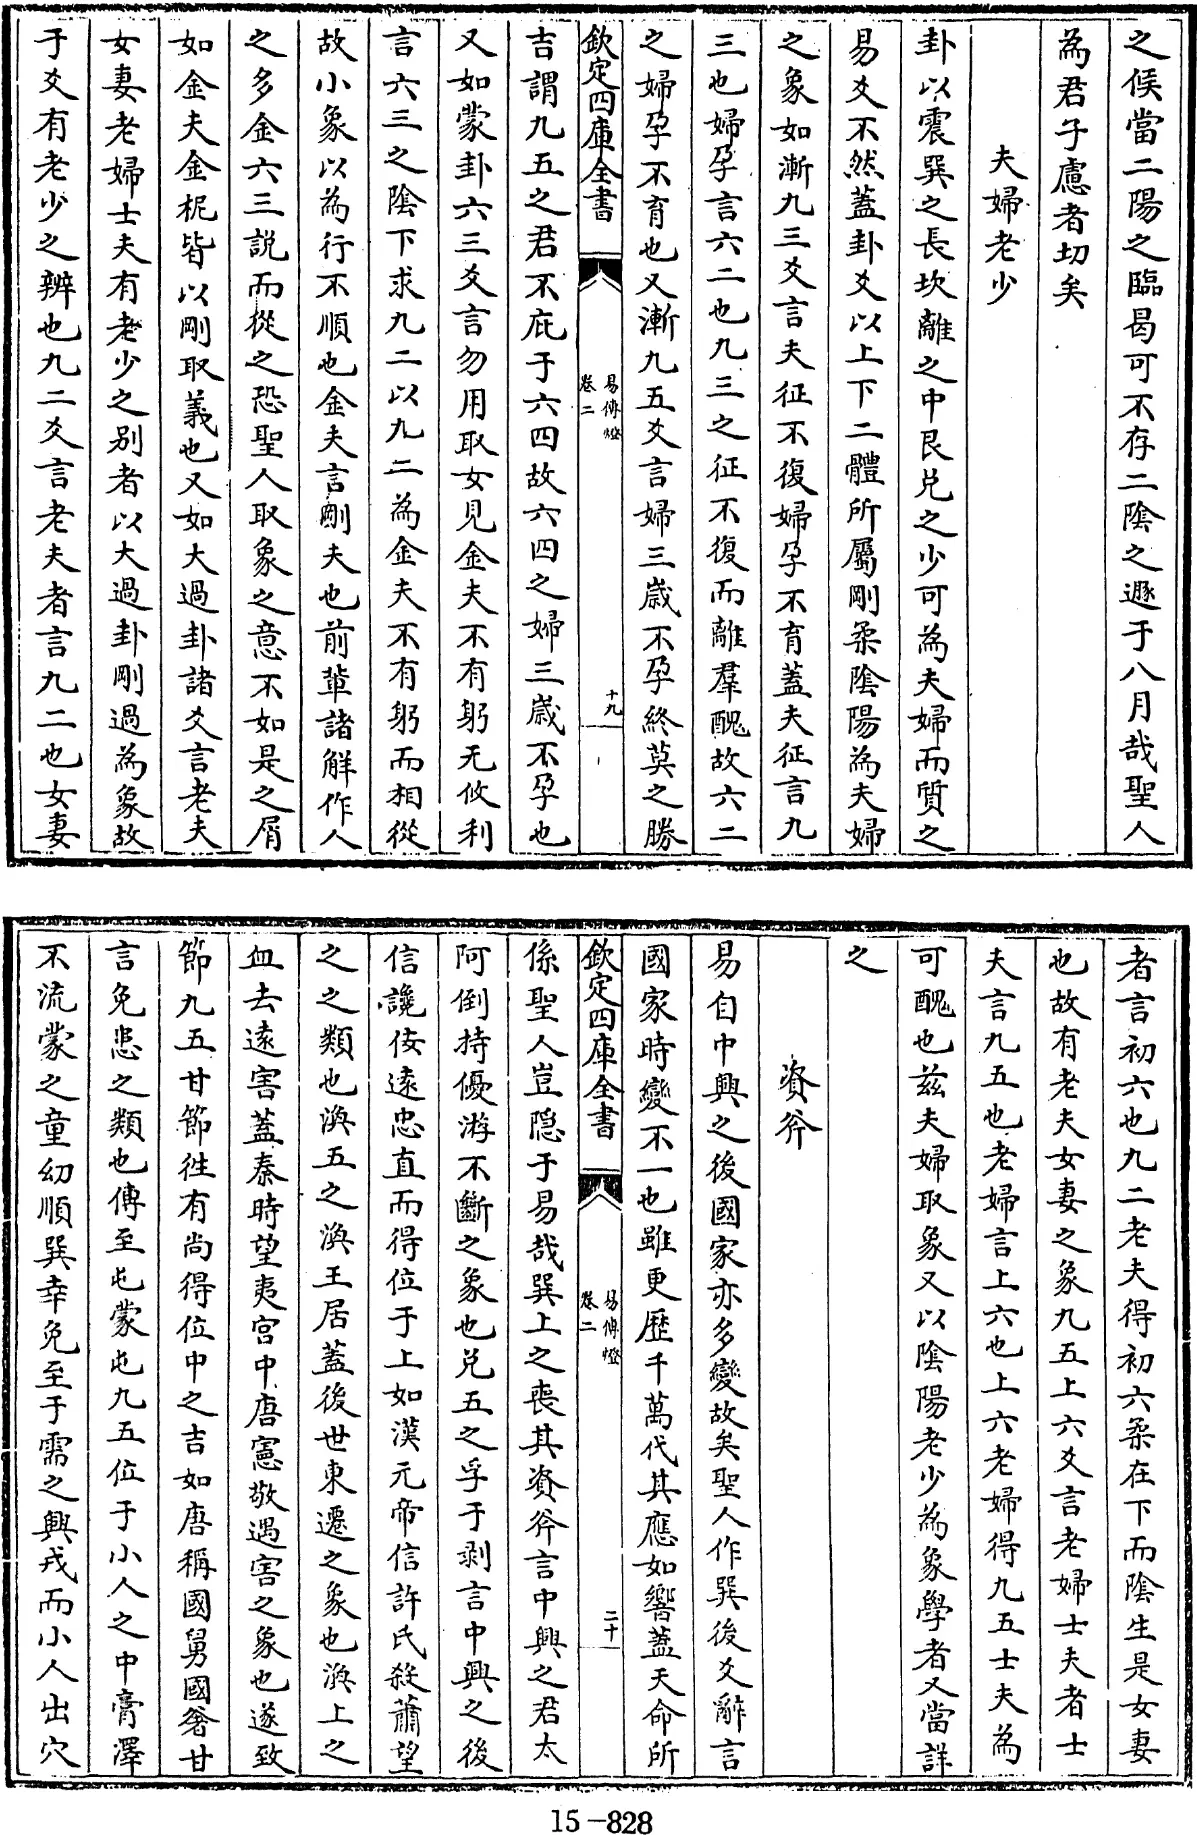 之候當二陽之臨曷可不存二陰之遯于八月哉聖人
為君子慮者切矣
夫婦老少
卦以震巽之長坎離之中艮兌之少可為夫婦而質之
易爻不然蓋卦爻以上下二體所屬剛柔陰陽為夫婦
之象如漸九三爻言夫征不復婦孕不育蓋夫征言九
三也婦孕言六二也九三之征不復而離羣醜故六二
之婦孕不育也又漸九五爻言婦三歲不孕終莫之勝
欽定四庫全書
易傳燈
卷二
十九
吉謂九五之君不庇于六四故六四之婦三歲不孕也
又如蒙卦六三爻言勿用取女見金夫不有躬无攸利
言六三之陰下求九二以九二為金夫不有躬而相從
故小象以為行不順也金夫言剛夫也前輩諸解作人
之多金六三説而從之恐聖人取象之意不如是之屑
如金夫金柅皆以剛取義也又如大過卦諸爻言老夫
女妻老婦士夫有老少之别者以大過卦剛過為象故
于爻有老少之辨也九二爻言老夫者言九二也女妻
者言初六也九二老夫得初六柔在下而陰生是女妻
也故有老夫女妻之象九五上六爻言老婦士夫者士
夫言九五也老婦言上六也上六老婦得九五士夫為
可醜也兹夫婦取象又以陰陽老少為象學者又當詳
之
資斧
易自中興之後國家亦多變故矣聖人作巽後爻辭言
國家時變不一也雖更歷千萬代其應如響蓋天命所
欽定四庫全書
易傳燈
卷二
二十
係聖人豈隐于易哉巽上之喪其資斧言中興之君太
阿倒持優游不斷之象也兌五之孚于剥言中興之後
信讒佞遠忠直而得位于上如漢元帝信許氏殺蕭望
之之類也渙五之渙王居蓋後世東遷之象也渙上之
血去遠害蓋秦時望夷宫中唐憲敬遇害之象也遂致
節九五甘節徃有尚得位中之吉如唐稱國舅國奢甘
言免恚之類也傳至屯蒙屯九五位于小人之中膏澤
不流蒙之童幼順巽幸免至于需之興戎而小人出穴
15-828